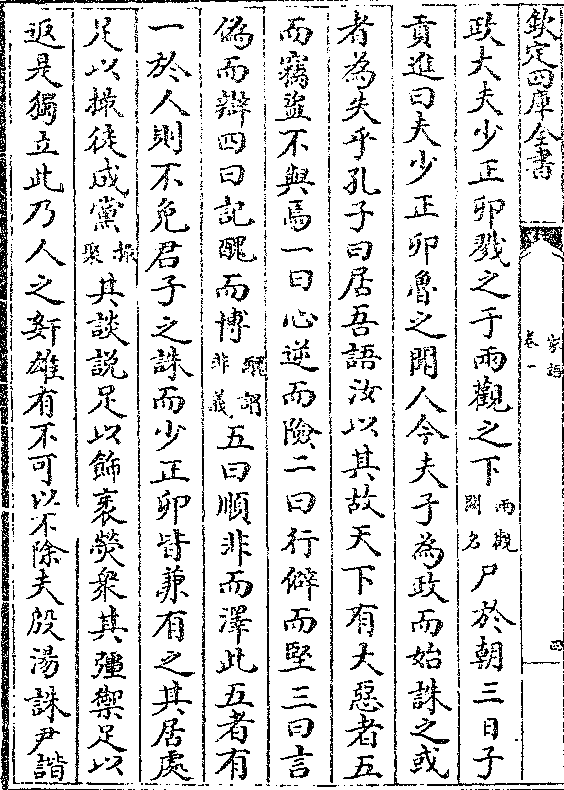 欽定四庫全書
家語
卷一
四
政大夫少正卯戮之于兩觀之下兩觀闕名尸於朝三日子
貢進曰夫少正卯魯之聞人今夫子為政而始誅之或
者為失乎孔子曰居吾語汝以其故天下有大惡者五
而竊盜不與焉一曰心逆而險二曰行僻而堅三曰言
偽而辯四曰記醜而博醜謂非義五曰順非而澤此五者有
一於人則不免君子之誅而少正卯皆兼有之其居處
足以撮徒成黨撮聚其談說足以飾袤熒衆其彊禦足以
返是獨立此乃人之姧雄有不可以不除夫殷湯誅尹諧